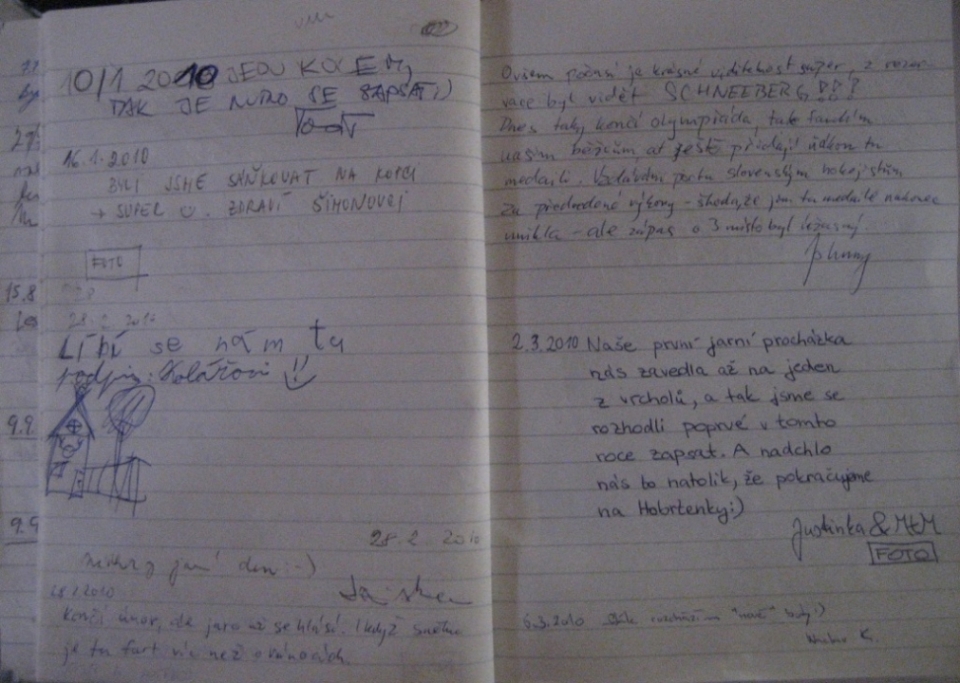 10/1 2010 JEDU KOLEM,
TAK JE NUTNO SE ZAPSAT:)
16.1.2010
BYLI JSME SÁŇKOVAT NA KOPCI
→ SUPER ☺. ZDRAVÍ ŠIMONOVCI
FOTO
15.8
28.2.2010
Líbí se nám tu
podpis: Kolářovi
9.9
9.9
28.2 2010
jarní den :-)
28.2.2010
Končí únor, ale jaro už se hlásí. I když sněhu
je tu fart víc než o vánocích.
Ovšem počasí je krásné viditelnost super, z rozer-
vace byl vidět SCHNEEBERG!!!
Dnes taky končí olympiáda, tak fandím
našim běžcům, ať ještě přidají nějakou tu
medaili. Vzdávám poctu slovenským hokejistům
za předvedené výkony - škoda, že jim ta medaile nakonec
unikla - ale zápas o 3 místo byl úžasný.
2.3.2010 Naše první jarní procházka
nás zavedla až na jeden
z vrcholů, a tak jsme se
rozhodli poprvé v tomto
roce zapsat. A nadchlo
nás to natolik, že pokračujeme
na Hobrtenky:)
Justinka & MtM
FOTO
6.3.2010 body:)
K.